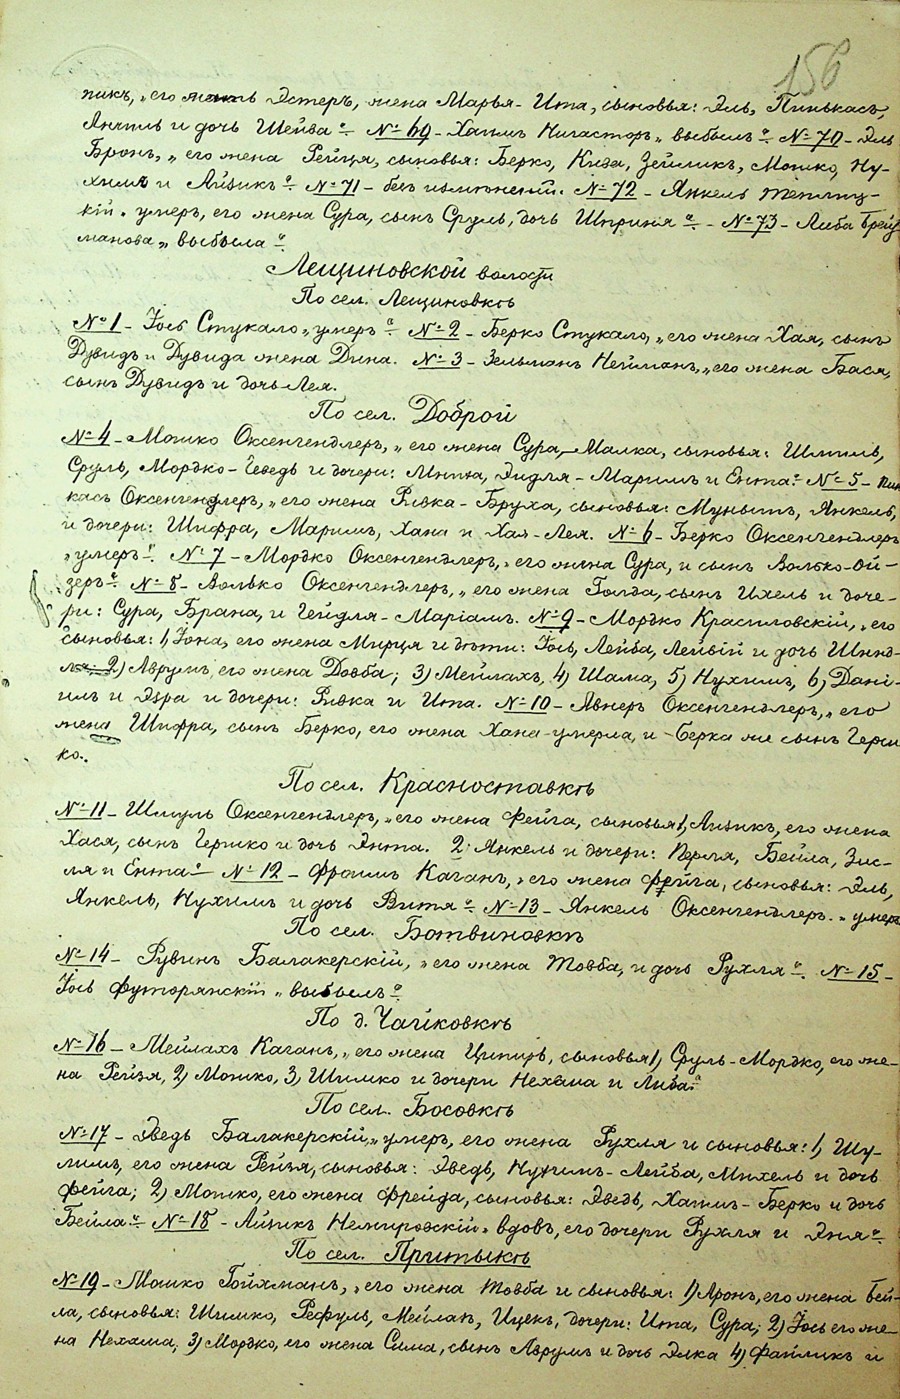 156
пикъ, „его мать Эстеръ, жена Марья-Ита, сыновья: Эль, Пинькасъ,
Анчиль и дочь Шейва“. №69 - Хаимъ Нигасторъ „выбылъ“. №70 - Эль
Бронъ, „его жена Рейця, сыновья: Берко, Кива, Зейликъ, Мошко, Ну-
химъ и Айзикъ“. №71 - безъ измѣненій. №72 - Янкель Теплиц-
кій „умеръ, его жена Сура, сынъ Сруль, дочь Шпринця“. - №73 - Либа Брей
манова „выбыла“.
Лещиновской волости
По сел. Лещиновкѣ
№1 - Іось Стукало „умеръ“. №2 - Берко Стукало, „его жена Хая, сынъ
Дувидъ и Дувида жена Дина. №3 - Зельманъ Нейманъ, „его жена Бася,
сынъ Дувидъ и дочь-Лея.
По сел. Доброй
№4 - Мошко Оксенгендлеръ, „его жена Сура-Малка, сыновья: Шмиль,
Сруль, Мордко-Геведъ и дочери: Минта, Эйдля-Маримъ и Ента“. №5 - Пин
касъ Оксенгендлеръ, „его жена Ривка-Бруха, сыновья: Мунышъ, Янкель,
и дочери: Шифра, Маримъ, Хана и Хая-Лея. №6 - Берко Оксенгендлеръ
„умеръ“. №7 - Мордко Оксенгендлеръ, „его жена Сура, и сынъ Волько-Ой-
зеръ“. №8 - Волько Оксенгендлеръ, „его жена Голда, сынъ Ихель и доче-
ри: Сура, Брана, и Гейдля-Маріамъ. №9 - Мордко Красиловскій, „его
сыновья: 1) Іона, его жена Мирця и дѣти: Іось, Лейба, Лейвій и дочь Шинд-
ля; 2) Аврумъ, его жена Довба; 3) Мейлахъ, 4) Шама, 5) Нухимъ, 6) Дані-
илъ и Эзра и дочери: Ривка и Ита. №10 - Авнеръ Оксенгендлеръ, „его
жена Шифра, сынъ Берко, его жена Хана-умерла, и Берка же сынъ Герш
ко.
По сел. Красноставкѣ
№11 - Шмуль Оксенгендлеръ, „его жена Фейга, сыновья 1) Айзикъ, его жена
Хася, сынъ Гершко и дочь Энта. 2. Янкель и дочери: Перля, Бейла, Зис-
ля и Ента“ - №12 - Фроимъ Каганъ, „его жена Фрейга, сыновья: Эль,
Янкель, Нухимъ и дочь Витя“. №13 - Янкель Оксенгендлеръ - „умеръ
По сел. Ботвиновкѣ
№14 - Рувинъ Балакерскій, „его жена Товба, и дочь Рухля“. №15 -
Іось Футорянскій „выбылъ“.
По д. Чайковкѣ
№16 - Мейлахъ Каганъ, „его жена Ципиръ, сыновья 1) Сруль-Мордко, его же-
на Рейзя, 2) Мошко, 3) Шимко и дочери Нехама и Либа“.
По сел. Босовкѣ
№17 - Эведь Балакерскій, „умеръ, его жена Рухля и сыновья: 1) Шу-
лимъ, его жена Рейзя, сыновья: Эведь, Нухимъ-Лейба, Михель и дочь
Фейга; 2) Мошко, его жена Фрейда, сыновья: Эведь, Хаимъ-Берко и дочь
Бейла“. №18 - Айзикъ Немировскій „вдовъ, его дочери Рухля и Эня“.
По сел. Притыкѣ
№19 - Мошко Гойхманъ, „его жена Товба и сыновья: 1) Аронъ, его жена Бей-
ла, сыновья: Шимко, Рефуль, Мейлах, Ицек, дочери: Ита, Сура; 2) Іось его же-
на Нехама, 3) Мордко, его жена Сима, сынъ Аврумъ и дочь Элка 4) Файликъ и